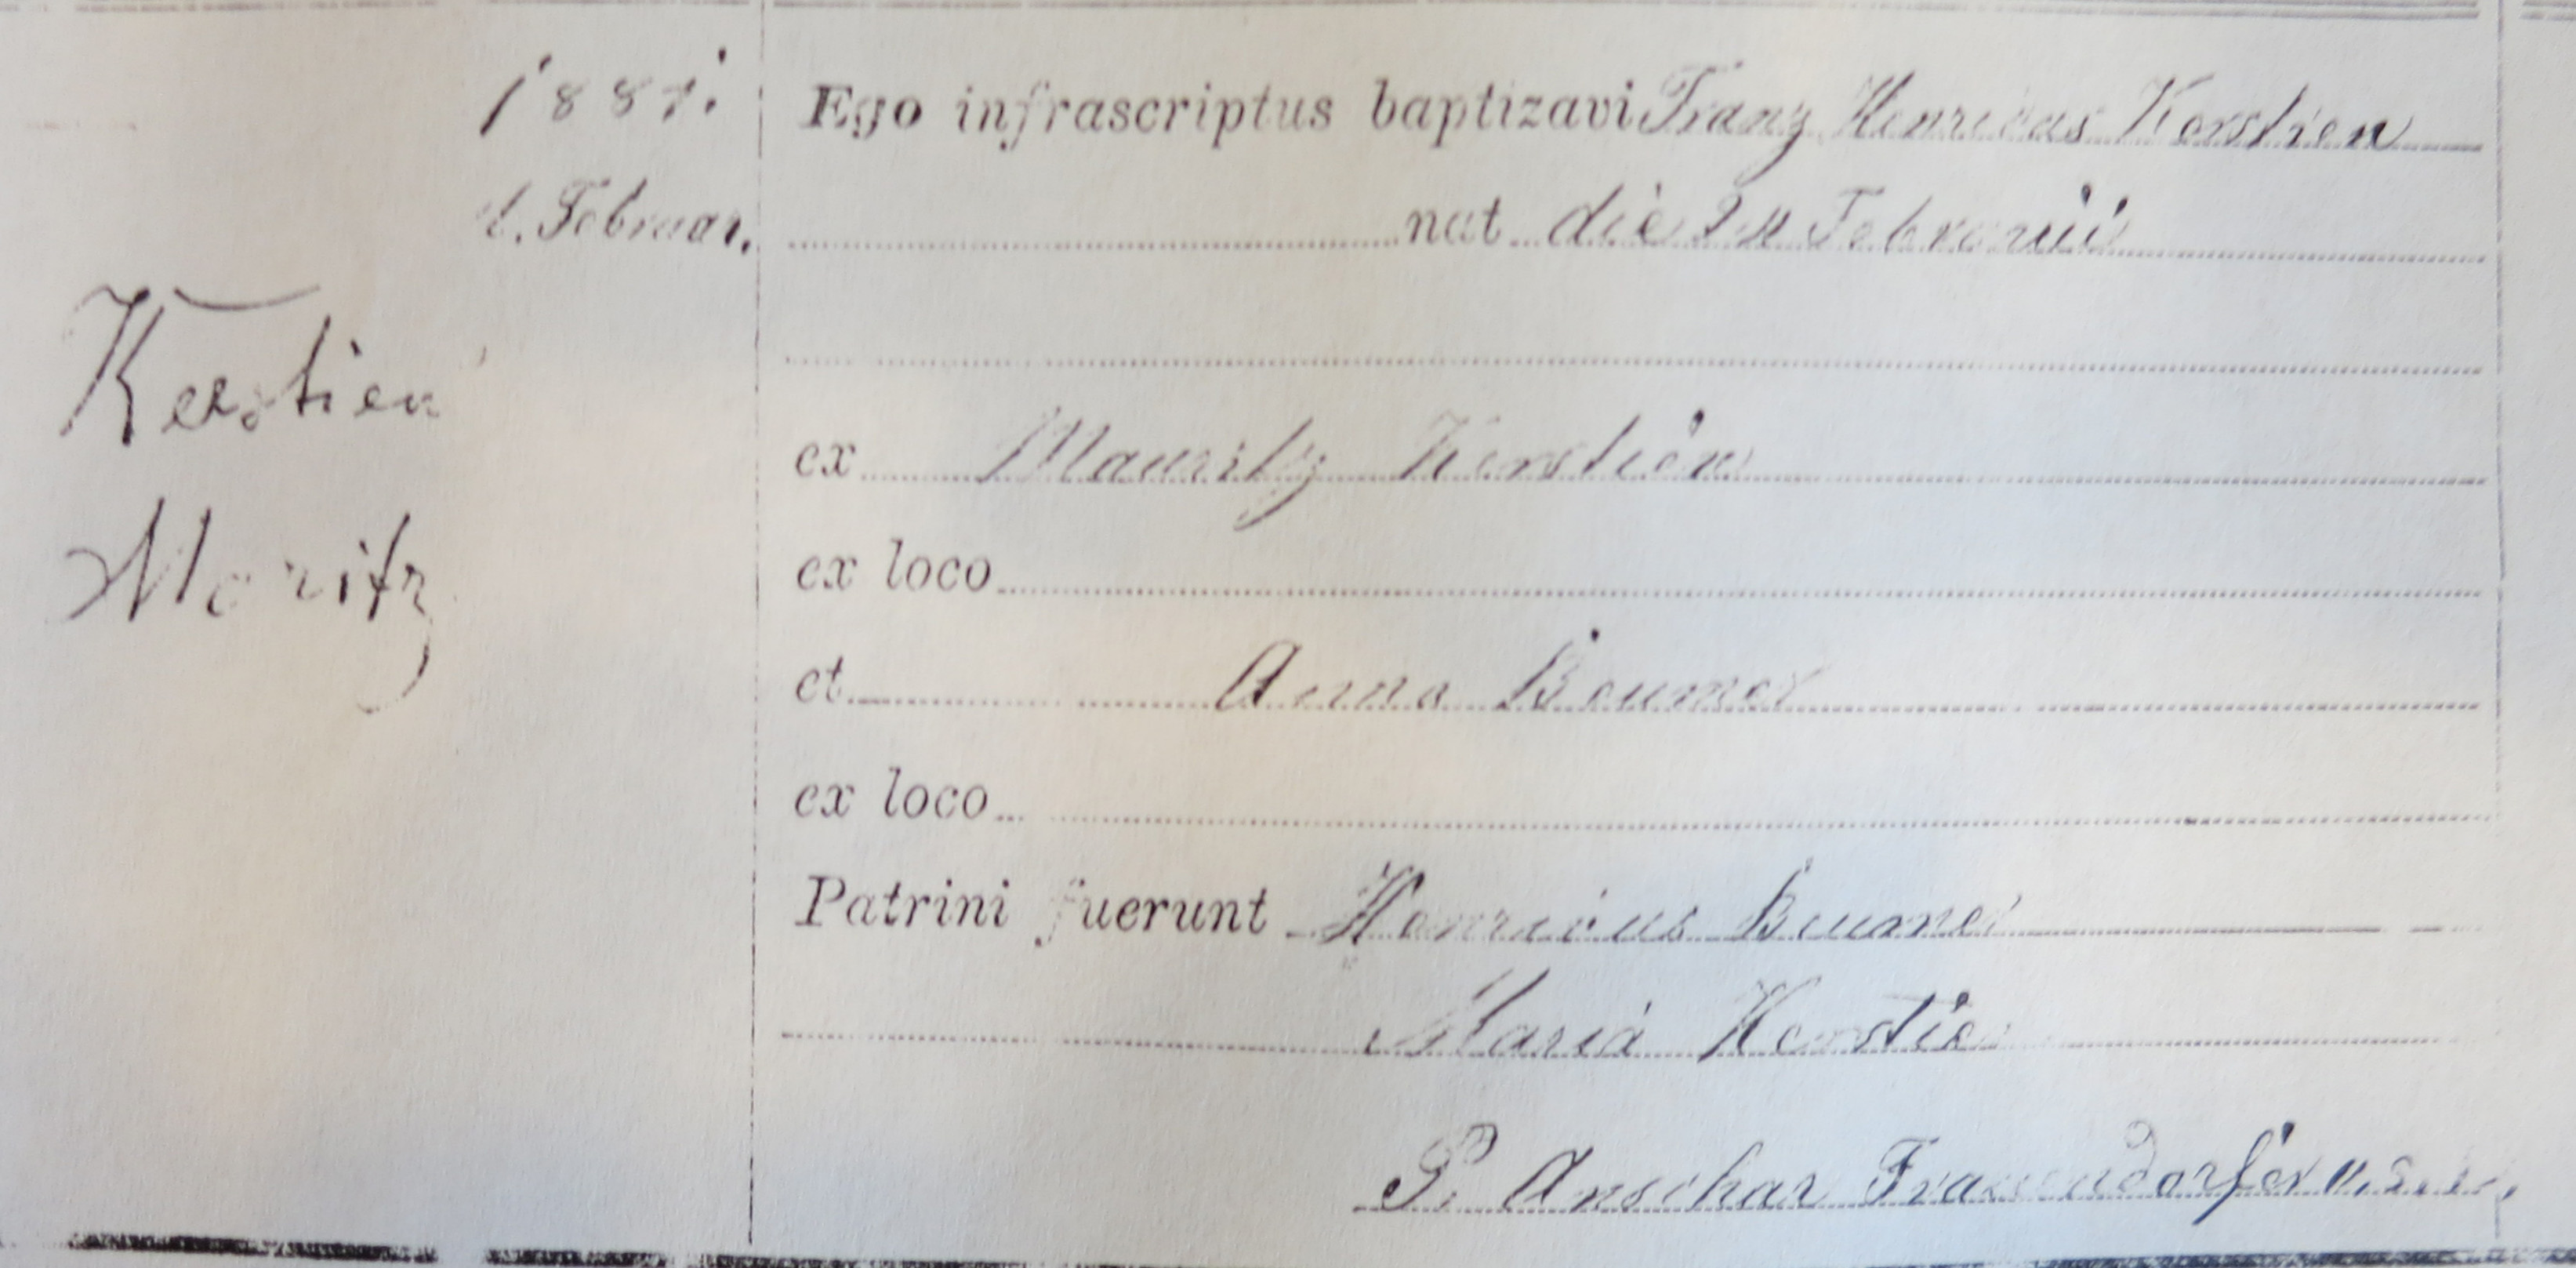 1881.
d. Februar.
Kerstien
Moritz
Ego infrascriptus baptizavi Franz Henricus Kerstien
nat die Februarii
ex Mauritz Kerstien
ex loco
et Anna Beumer
ex loco
Patrini fuerunt Henricus Beumer
Maria Kerstien
P. Anschar Frauendorfer O.S.B.